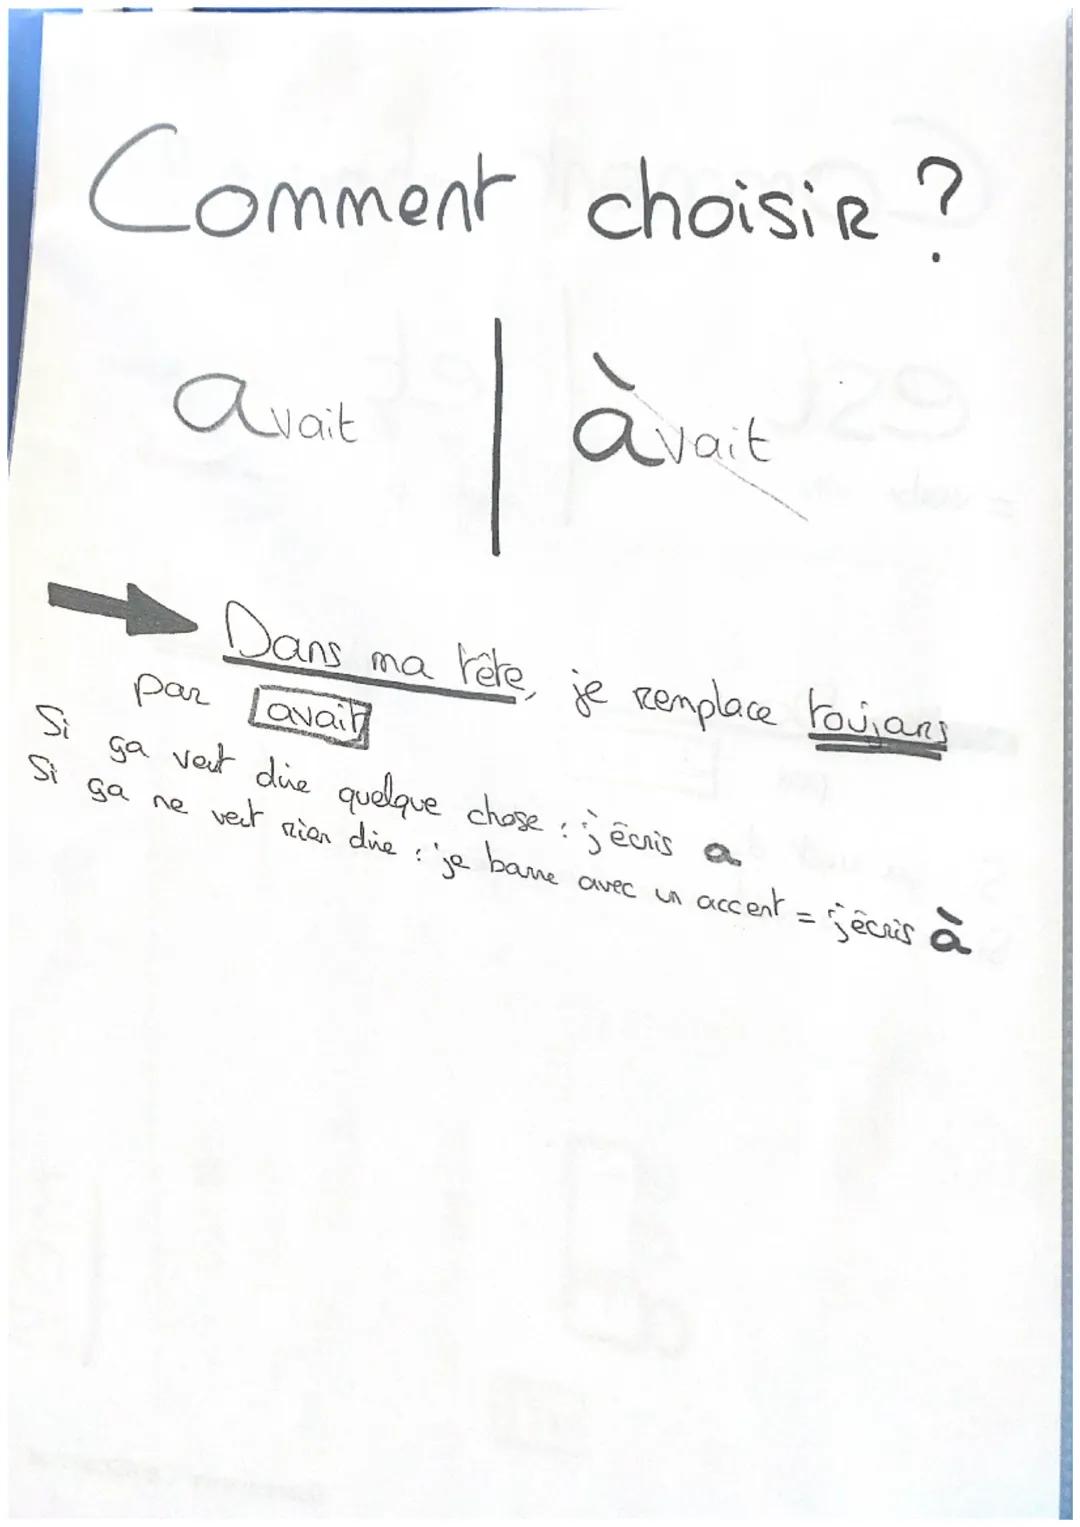 Comment choisir ?
avait | àvait
Dans ma tête, je remplace toujours
par avait
Si ça veut dire quelque chose : j'écris a
Si ça ne veut rien dire : je barre avec un accent = j'écris à